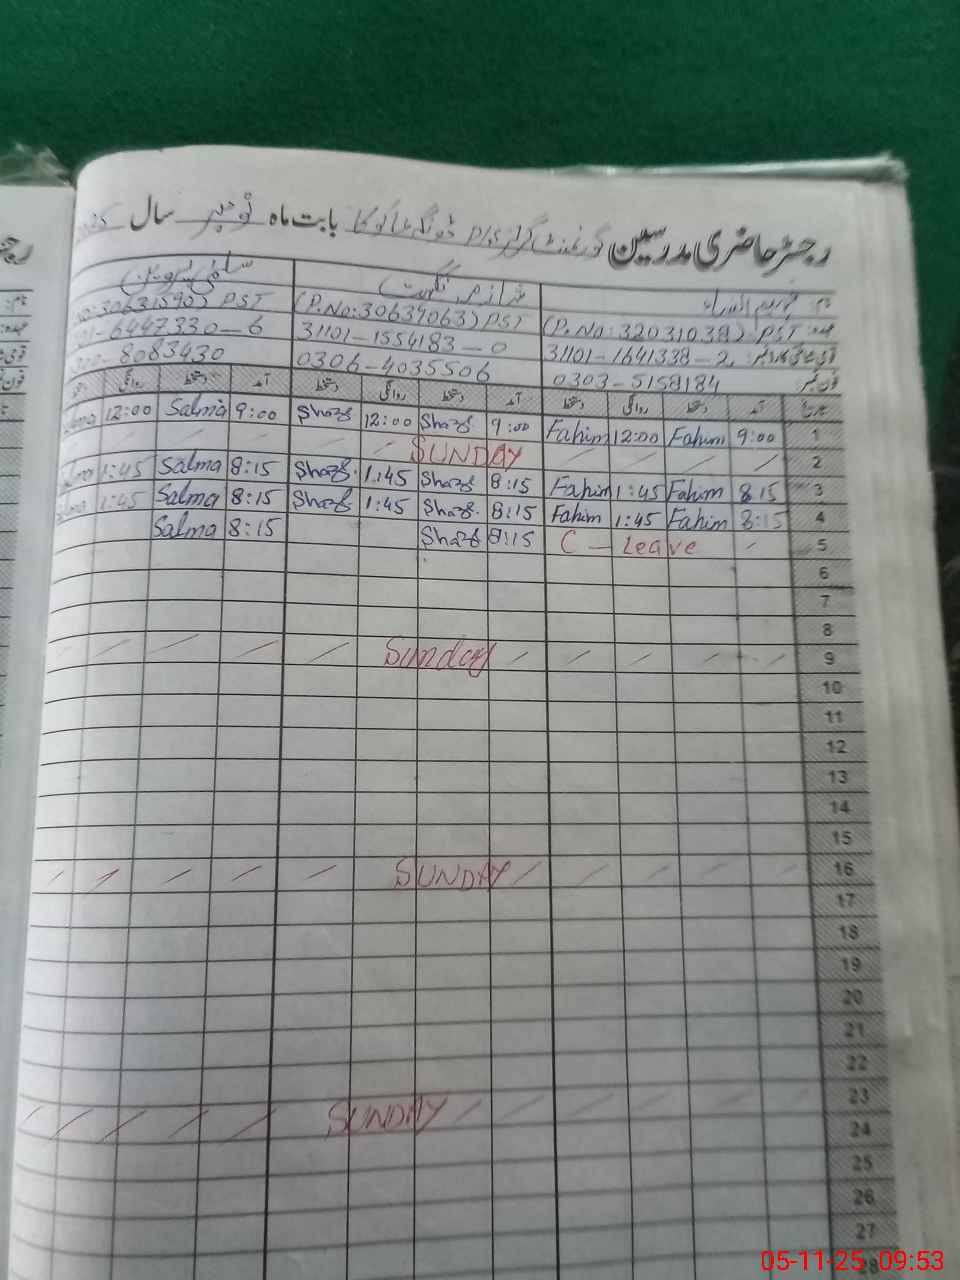 رجسٹر حاضری مدرسین گورنمنٹ گرلز P/S ڈونگہ بابت ماہ نومبر سال 2025
نام: فہیم النساء شازمہ نگہت سلمیٰ پروین
(P.No: 32031038) PST (P.No: 30634063) PST No: 30631590) PST
31101-1641338-2 31101-1554183-0 01-6447330-6
0303-5158184 0306-4035506 8083430
تاریخ آمد دستخط روانگی دستخط آمد دستخط روانگی دستخط آمد دستخط روانگی
1 9:00 Fahim 12:00 Fahim 9:00 Shazf 12:00 Shazf 9:00 Salma 12:00 Salma
2 SUNDAY
3 8:15 Fahim 1:45 Fahim 8:15 Shazf 1:45 Shazf 8:15 Salma 1:45 Salma
4 8:15 Fahim 1:45 Fahim 8:15 Shazf 1:45 Shazf 8:15 Salma 1:45 Salma
5 C - Leave 8:15 Shazf 8:15 Salma
6
7
8
9 Sunday
10
11
12
13
14
15
16 SUNDAY
17
18
19
20
21
22
23 SUNDAY
24
25
26
27
28
05-11-25 09:53